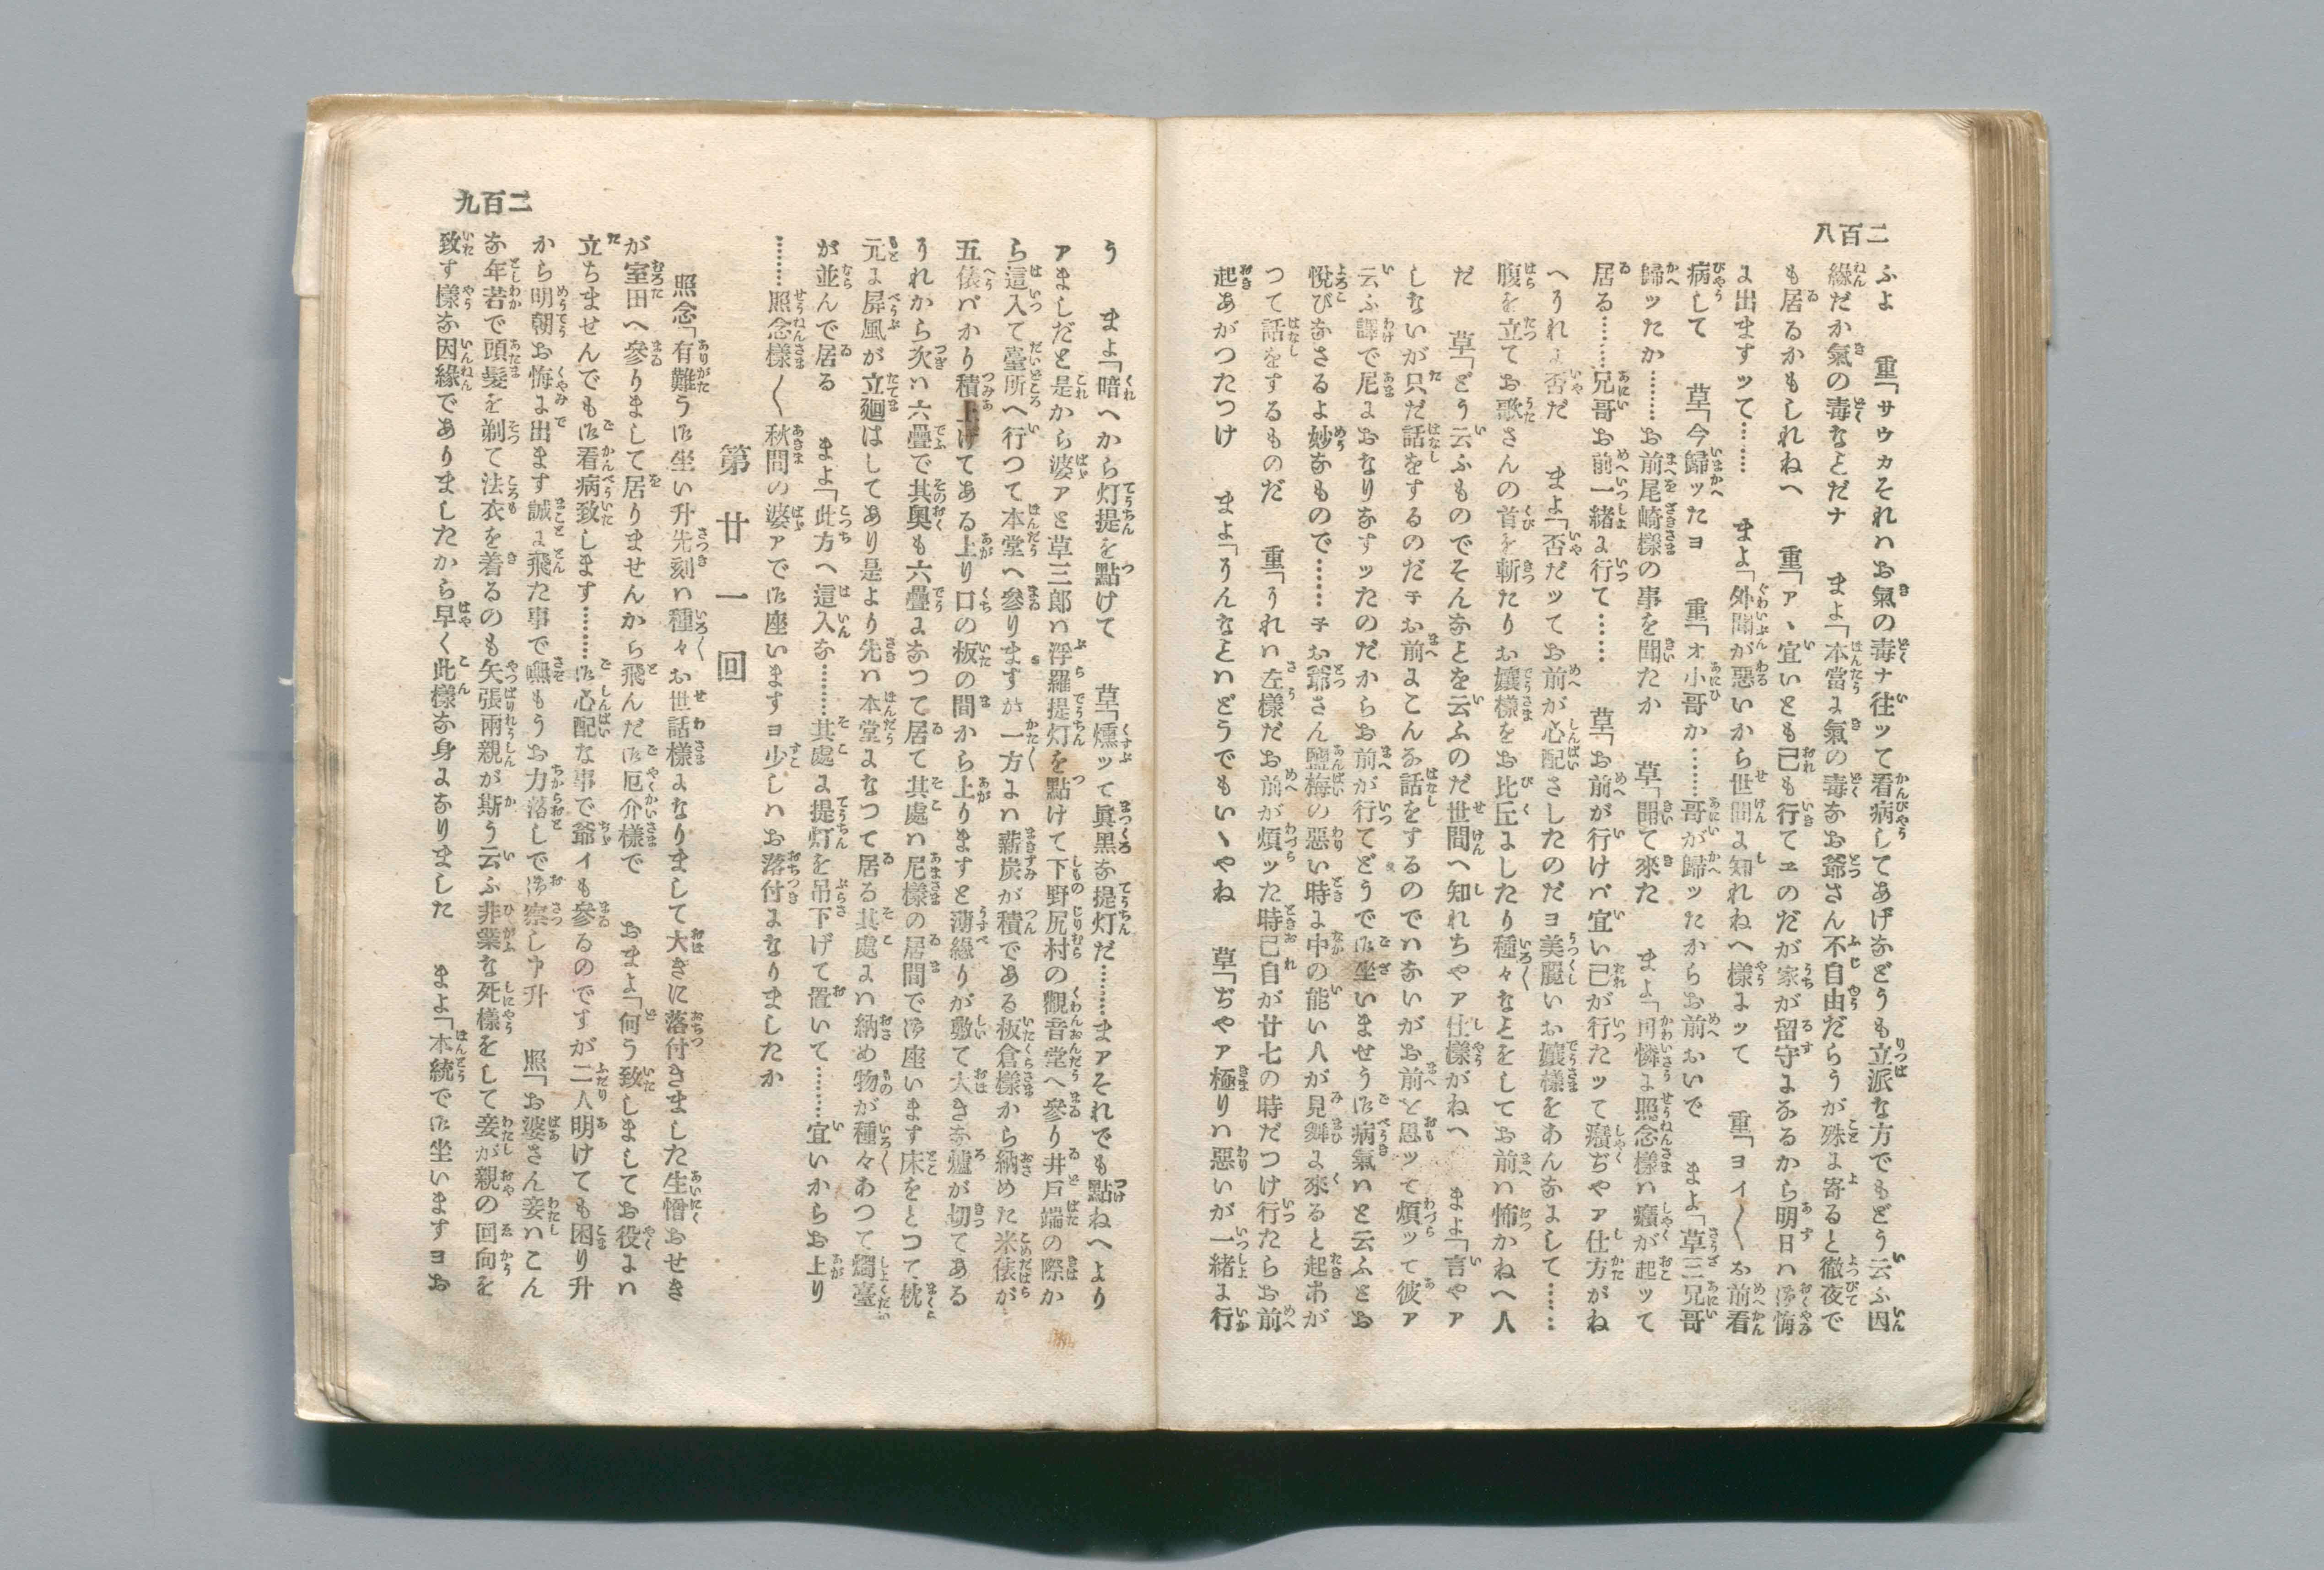 二百八
ふよ　重「サウカそれハお氣の毒ナ往ッて看病してあげなどうも立派な方でもどう云ふ因
緣だか氣の毒なことだナ　まよ「本當に氣の毒なお爺さん不自由だらうが殊に寄ると徹夜で
も居るかもしれねへ　重「ア、宜いとも己も行てヱのだが家が留守になるから明日ハ御悔
に出ますッて………　まよ「外聞が惡いから世間に知れねへ樣にッて　重「ヨイ〳〵お前看
病して　草「今歸ッたヨ　重「オ小哥か………哥が歸ッたからお前おいで　まよ「草三兄哥
歸ッたか………お前尾崎樣の事を聞たか　草「聞て來た　まよ「可憐に照念樣ハ癪が起ッて
居る………兄哥お前一緒に行て……　草「お前が行けバ宜い己が行たッて癪ぢやア仕方がね
へそれに否だ　まよ「否だッてお前が心配さしたのだヨ美麗いお孃樣をあんなにして……
腹を立てお歌さんの首を斬たりお孃樣をお比丘にしたり種々なことをしてお前ハ怖かねへ人
だ　草「どう云ふものでそんなことを云ふのだ世間へ知れちやア仕樣がねへ　まよ「言やア
しないが只だ話をするのだチお前にこんな話をするのでハないがお前と思ッて煩ッて彼ア
云ふ譯で尼におなりなすッたのだからお前が行てどうで御坐いませう御病氣ハと云ふとお
悅びなさるよ妙なもので……チお爺さん鹽梅の惡い時に中の能い人が見舞に來ると起あが
つて話をするものだ　重「それハ左樣だお前が煩ッた時己自が廿七の時だつけ行たらお前
起あがつたつけ　まよ「そんなことハどうでもいゝやね　草「ぢやア極りハ惡いが一緒に行
二百九
う　まよ「暗へから灯提を點けて　草「燻ッて眞黑な提灯だ………まアそれでも點ねへより
アましだと是から婆アと草三郎ハ浮羅提灯を點けて下野尻村の觀音堂へ參り井戸端の際か
ら這入て臺所へ行つて本堂へ參りますが一方にハ薪炭が積である板倉樣から納めた米俵が
五俵バかり積上げてある上り口の板の間から上りますと薄緣りが敷て大きな爐が切てある
それから次ハ六疊で其奥も六疊になつて居て其處ハ尼樣の居間で御座います床をとつて枕
元に屏風が立廻はしてあり是より先ハ本堂になつて居る其處にハ納め物が種々あつて燭臺
が並んで居る　まよ「此方へ這入な………其處に提灯を吊下げて置いて………宜いからお上り
………照念樣〳〵秋間の婆アで御座いますヨ少しハお落付になりましたか
第廿一回
照念「有難う御坐い升先刻ハ種々お世話樣になりまして大きに落付きました生憎おせき
が室田へ參りまして居りませんから飛んだ御厄介樣で　おまよ「何う致しましてお役にハ
立ちませんでも御看病致します………御心配な事で爺イも參るのですが二人明けても困り升
から明朝お悔に出ます誠に飛た事で嘸もうお力落しで御察し申升　照「お婆さん妾ハこん
な年若で頭髮を剃て法衣を着るのも矢張兩親が斯う云ふ非業な死樣をして妾が親の回向を
致す樣な因緣でありましたから早く此樣な身になりました　まよ「本統で御坐いますヨお